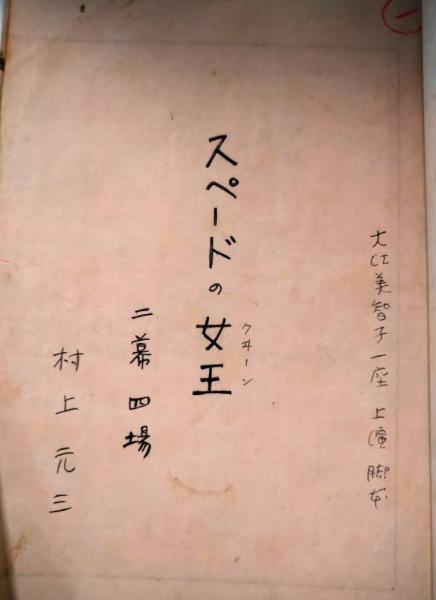 一
大江美智子一座 上演 脚本
スペードの女王
クヰーン
二幕四場
村上元三